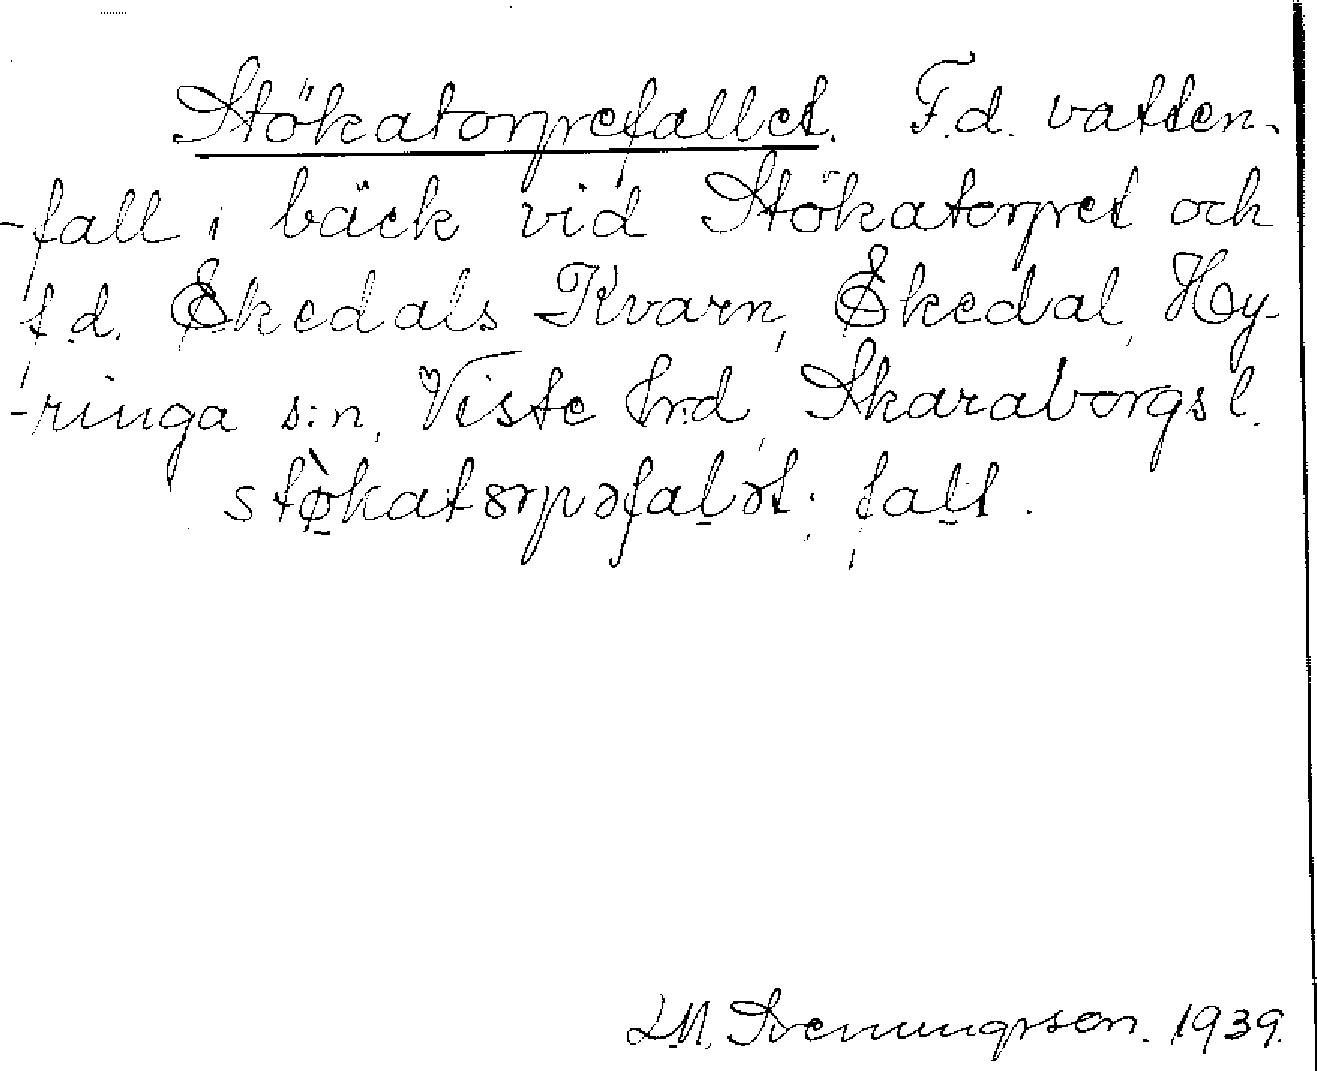 Stökatorpefallet. F.d. vatten-
-fall i bäck vid Stökatorpet och
f.d. Ekedals Kvarn, Ekedal, Hy-
-ringa s:n, Viste hrd, Skaraborgs l.
stø̀katorpəfal̠ət; fal̠t.
L.M. Svenungsson. 1939.